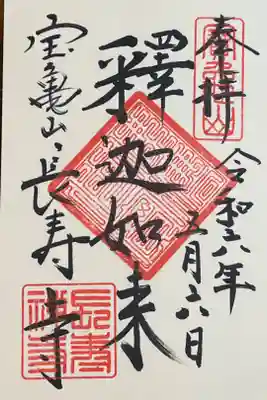 奉拝
令和六年
五月六日
釋迦如来
宝亀山 長寿寺
長壽禅寺